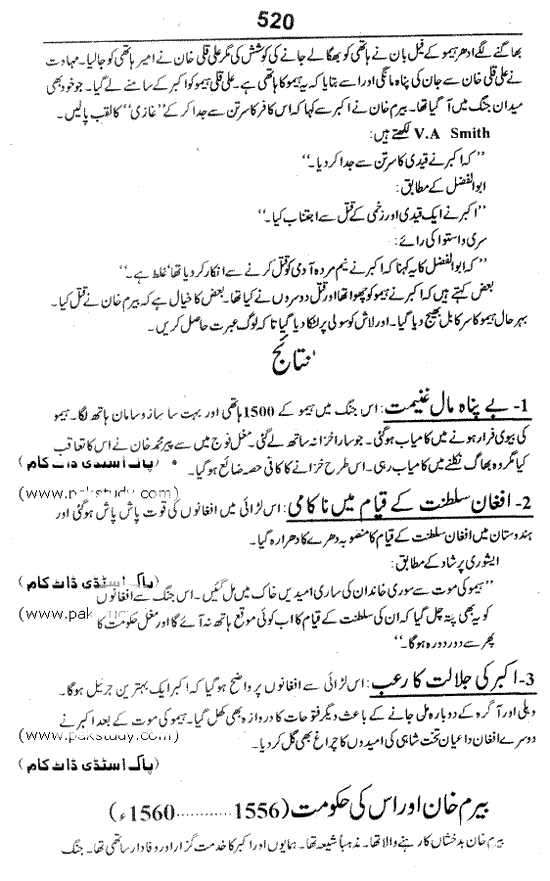 520
بھاگنے لگے ادھر ہیمو کے فیل بان نے ہاتھی کو بھگا لے جانے کی کوشش کی مگر علی قلی خان نے امیر ہاتھی کو جا لیا۔ مہادت
نے علی قلی خان سے جان کی پناہ مانگی اور اسے بتایا کہ یہ ہیمو کا ہاتھی ہے۔ علی قلی ہیمو کو اکبر کے سامنے لے گیا۔ جو خود بھی
میدان جنگ میں آ گیا تھا۔ بیرم خان نے اکبر سے کہا کہ اس کافر کا سر تن سے جدا کر کے ’’غازی‘‘ کا لقب پالیں۔
V.A Smith لکھتے ہیں:
’’کہ اکبر نے قیدی کا سر تن سے جدا کر دیا۔‘‘
ابوالفضل کے مطابق:
’’اکبر نے ایک قیدی اور زخمی کے قتل سے اجتناب کیا۔‘‘
سری واستوا کی رائے:
’’کہ ابوالفضل کا یہ کہنا کہ اکبر نے نیم مردہ آدمی کو قتل کرنے سے انکار کر دیا تھا‘ غلط ہے۔‘‘
بعض کہتے ہیں کہ اکبر نے ہیمو کو چھوا تھا اور قتل دوسروں نے کیا تھا۔ بعض کا خیال ہے کہ بیرم خان نے قتل کیا۔
بہرحال ہیمو کا سر کابل بھیج دیا گیا۔ اور لاش کو سولی پر لٹکا دیا گیا تاکہ لوگ عبرت حاصل کریں۔
نتائج
1- بے پناہ مال غنیمت: اس جنگ میں ہیمو کے 1500 ہاتھی اور بہت سا ساز و سامان ہاتھ لگا۔ ہیمو
کی بیوی فرار ہونے میں کامیاب ہو گئی۔ جو سارا خزانہ ساتھ لے گئی۔ مغل فوج میں سے پیر محمد خان نے اس کا تعاقب
کیا مگر وہ بھاگ نکلنے میں کامیاب رہی۔ اس طرح خزانے کا کافی حصہ ضائع ہو گیا۔
(پاک اسٹڈی ڈاٹ کام)
(www.pakstudy.com)
2- افغان سلطنت کے قیام میں ناکامی: اس لڑائی میں افغانوں کی قوت پاش پاش ہو گئی اور
ہندوستان میں افغان سلطنت کے قیام کا منصوبہ دھرے کا دھرا رہ گیا۔
ایشوری پرشاد کے مطابق:
’’ہیمو کی موت سے سوری خاندان کی ساری امیدیں خاک میں مل گئیں۔ اس جنگ سے افغانوں
(پاک اسٹڈی ڈاٹ کام)
کو یہ بھی پتہ چل گیا کہ ان کی سلطنت کے قیام کا اب کوئی موقع ہاتھ نہ آئے گا اور مغل حکومت کا
(www.pak
پھر سے دور دورہ ہو گا۔‘‘
3- اکبر کی جلالت کا رعب: اس لڑائی سے افغانوں پر واضح ہو گیا کہ اکبر ایک بہترین جرنیل ہو گا۔
دہلی اور آگرہ کے دوبارہ مل جانے کے باعث دیگر فتوحات کا دروازہ بھی کھل گیا۔ ہیمو کی موت کے بعد اکبر نے
(www.pakstudy.com)
دوسرے افغان داعیان تخت شاہی کی امیدوں کا چراغ بھی گل کر دیا۔
(پاک اسٹڈی ڈاٹ کام)
بیرم خان اور اس کی حکومت (1556..........1560ء)
بیرم خان بدخشاں کا رہنے والا تھا۔ مذہباً شیعہ تھا۔ ہمایوں اور اکبر کا خدمت گزار اور وفادار ساتھی تھا۔ جنگ